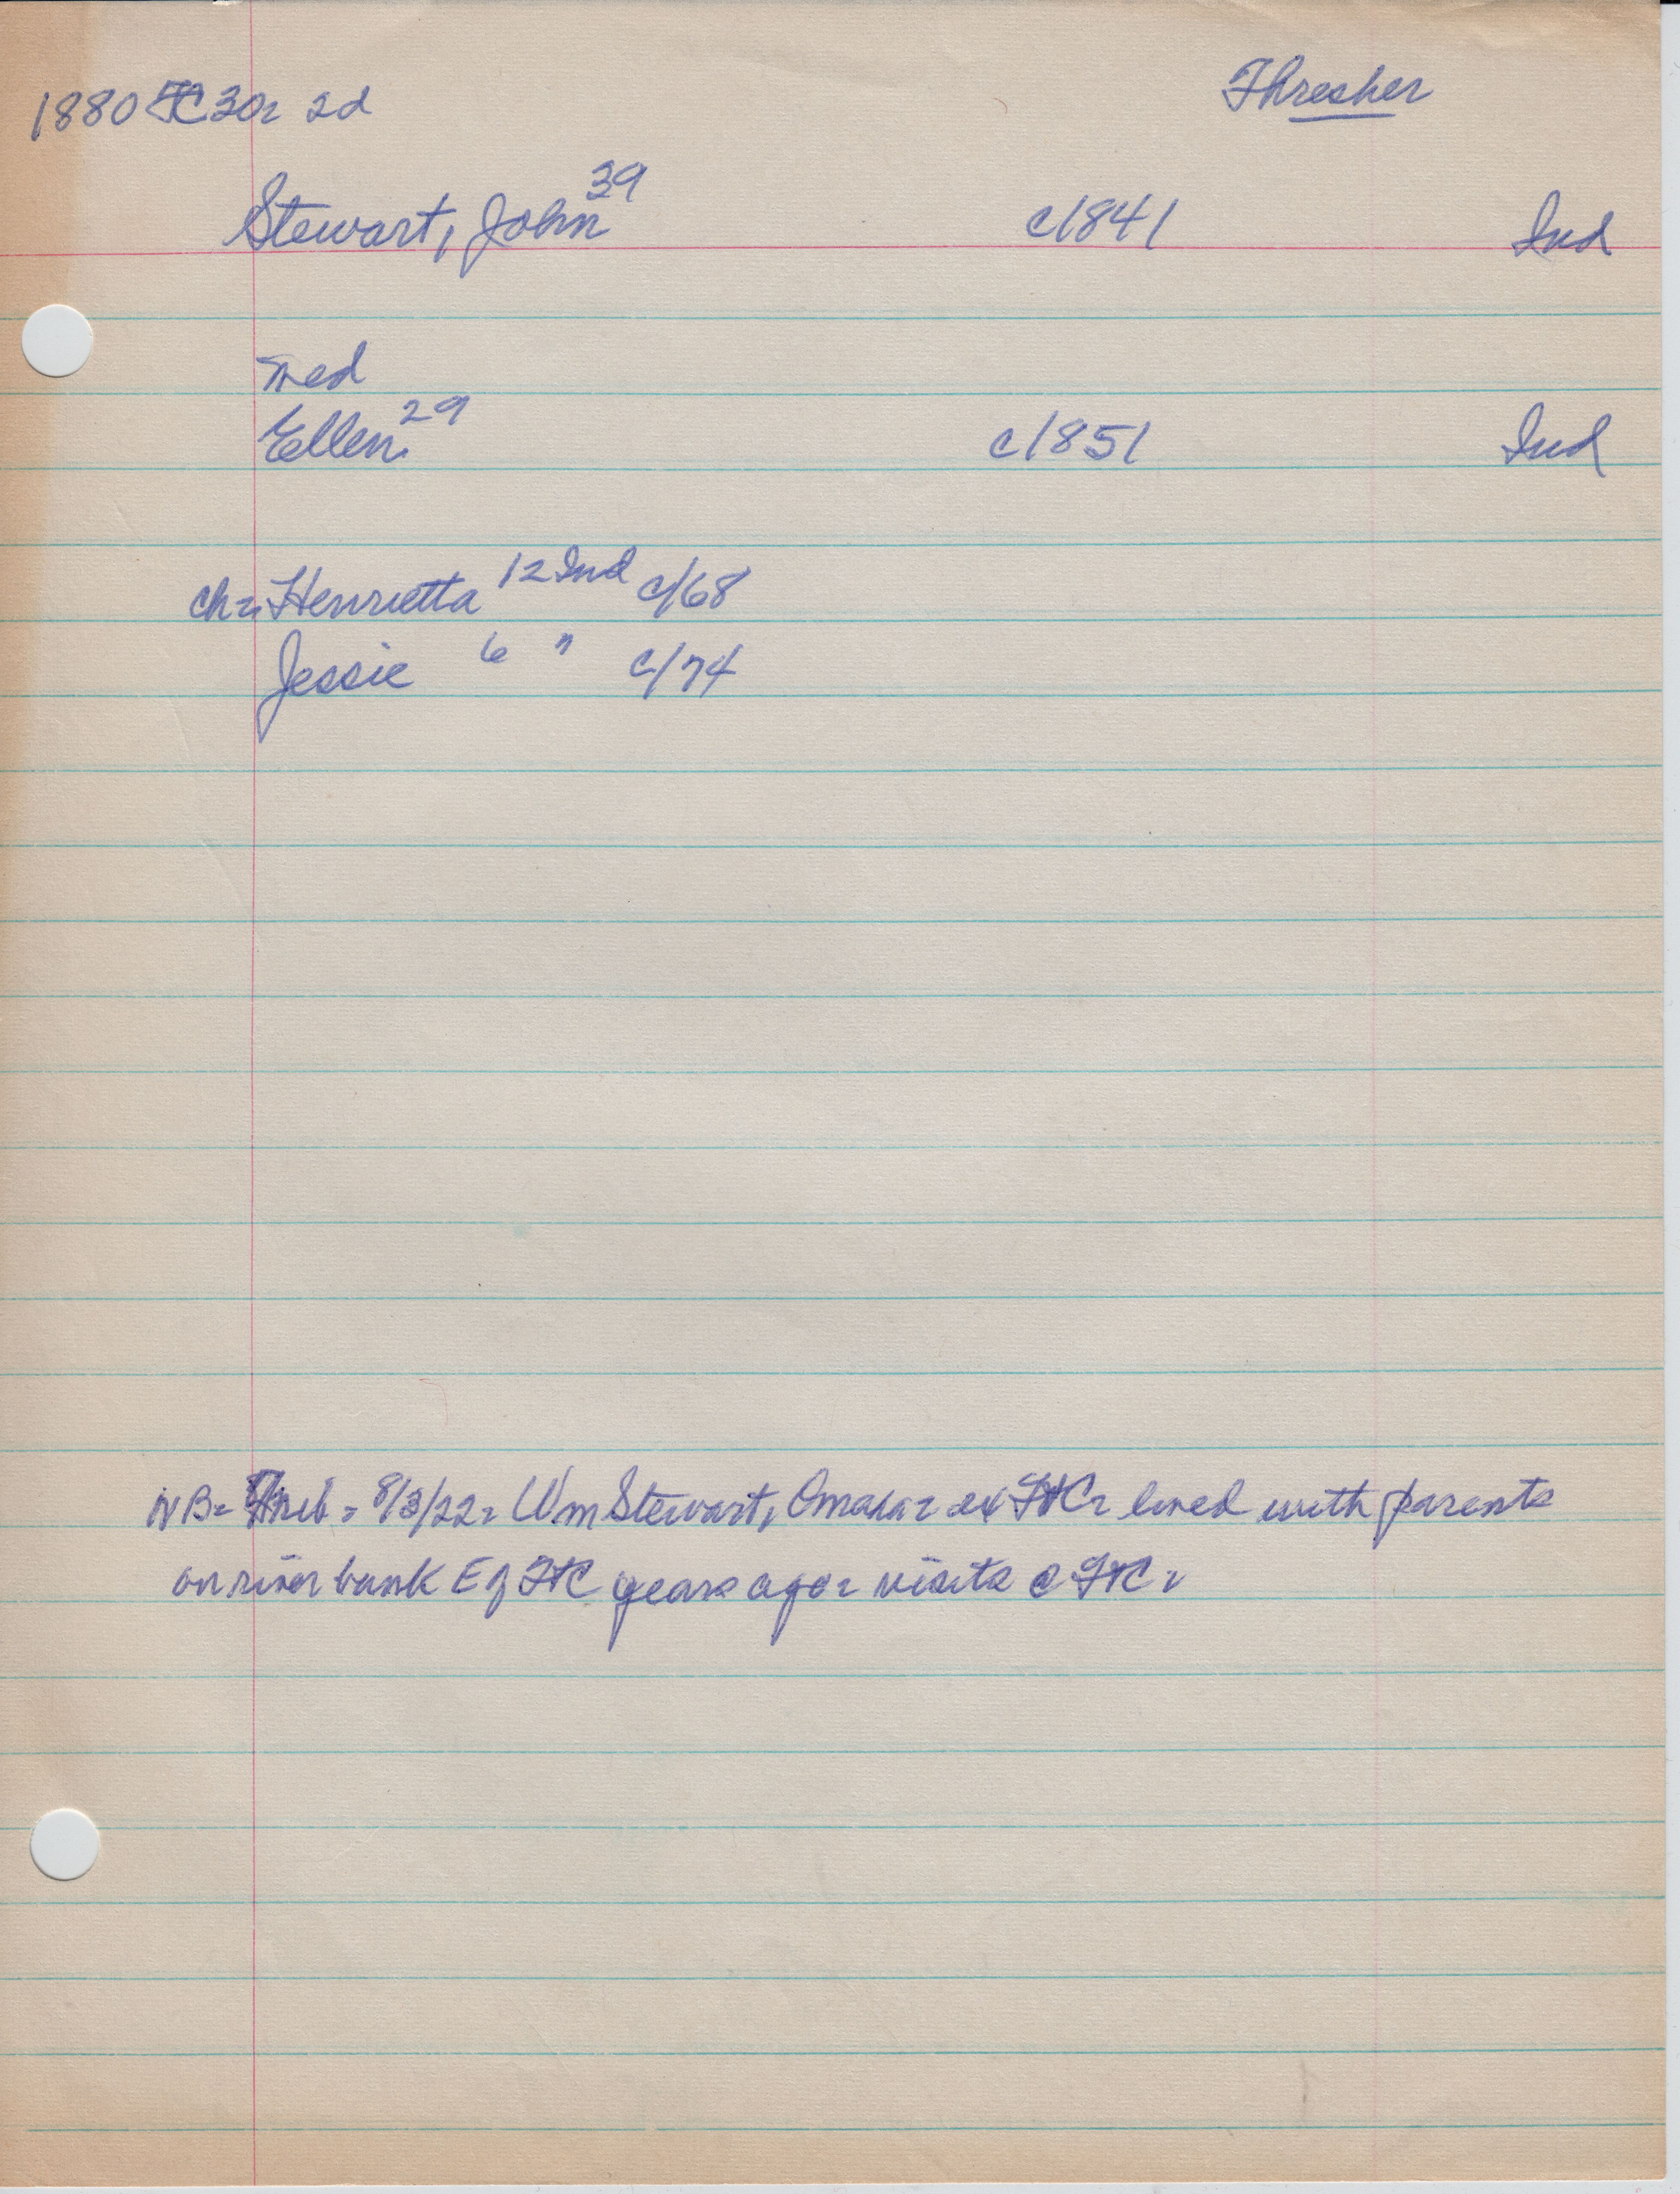 1880 FC 30= 2d
Thresher
Stewart, John 39 c1841 Ind
med
Ellen 29 c1851 Ind
ch= Henrietta 12 Ind c/68
Jessie 6 " c/74
NB= = 8/3/22= Wm Stewart, Omaha= ex FtC= lived with parents
on river bank E of FtC years ago= visits @ FtC=